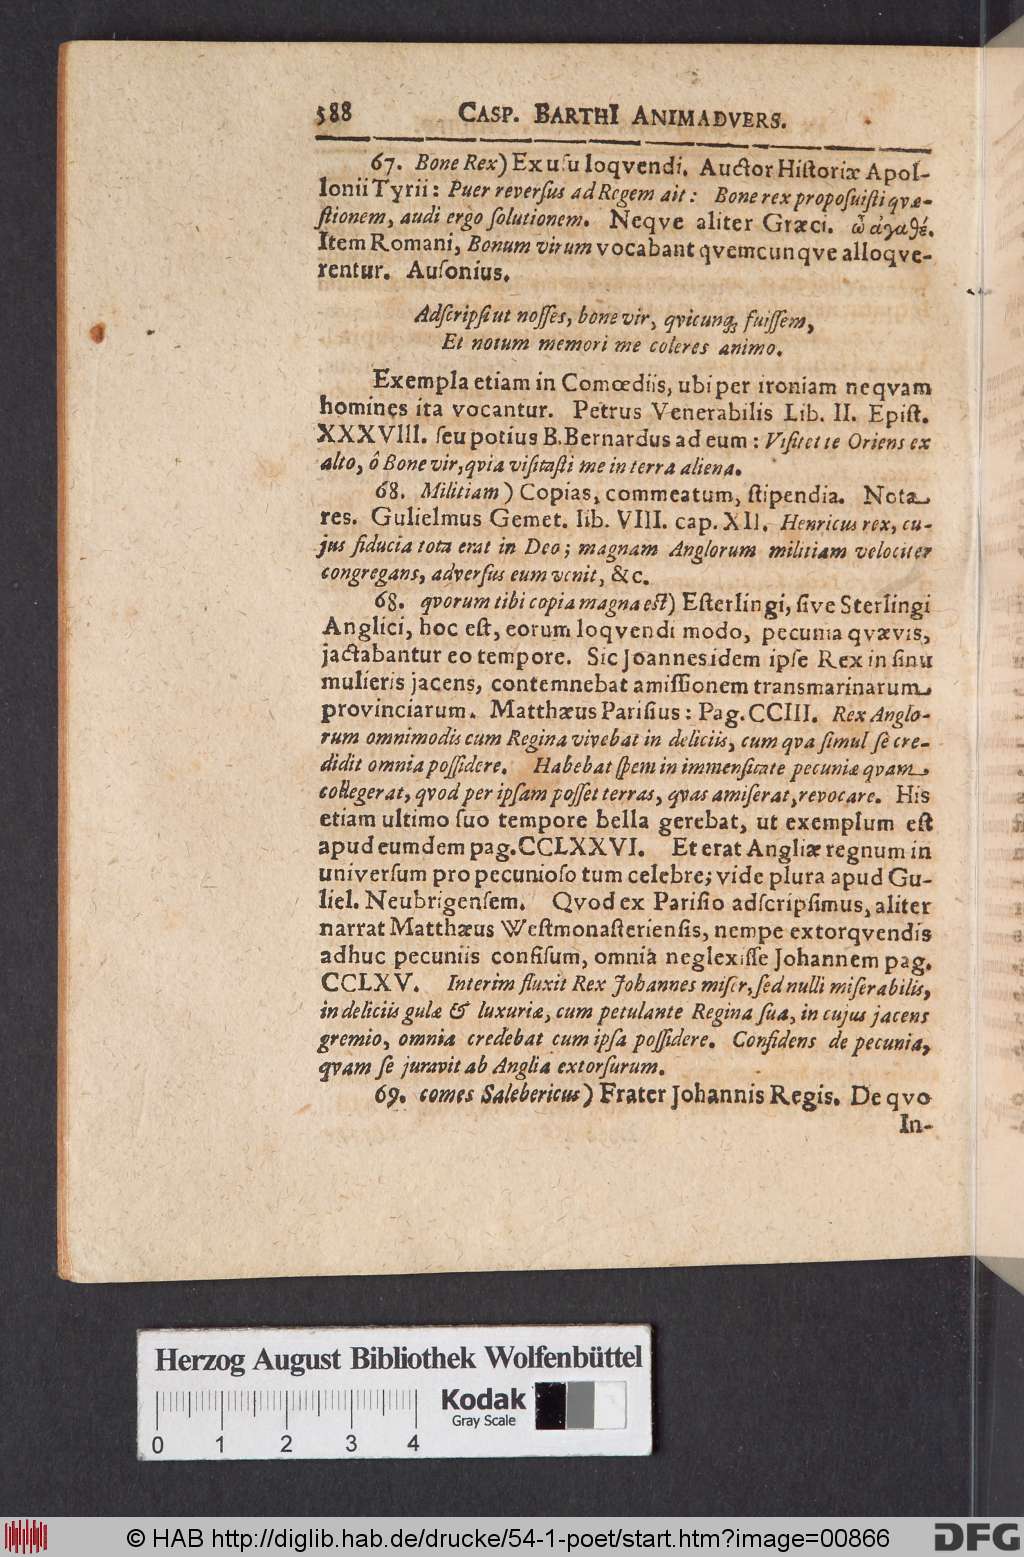 588 CASP. BARTHI ANIMADVERS.
67. Bone Rex) Ex uſu loqvendi. Auctor Hiſtoriæ Apol-
lonii Tyrii: Puer reverſus ad Regem ait: Bone rex propoſuiſti qvæ-
ſtionem, audi ergo ſolutionem. Neqve aliter Græci. ὦ ἀγαθέ.
Item Romani, Bonum virum vocabant qvemcunqve alloqve-
rentur. Auſonius.
Adſcripſi ut noſſes, bone vir, qvicunq; fuiſſem,
Et notum memori me coleres animo.
Exempla etiam in Comœdiis, ubi per ironiam neqvam
homines ita vocantur. Petrus Venerabilis Lib. II. Epiſt.
XXXVIII. ſeu potius B. Bernardus ad eum: Viſitet te Oriens ex
alto, ô Bone vir, qvia viſitaſti me in terra aliena.
68. Militiam) Copias, commeatum, ſtipendia. Nota
res. Gulielmus Gemet. lib. VIII. cap. XII. Henricus rex, cu-
jus fiducia tota erat in Deo; magnam Anglorum militiam velociter
congregans, adverſus eum venit, &c.
68. qvorum tibi copia magna eſt) Eſterlingi, ſive Sterlingi
Anglici, hoc eſt, eorum loqvendi modo, pecunia qvævis,
jactabantur eo tempore. Sic Joannes idem ipſe Rex in ſinu
mulieris jacens, contemnebat amiſſionem transmarinarum
provinciarum. Matthæus Pariſius: Pag. CCIII. Rex Anglo-
rum omnimodis cum Regina vivebat in deliciis, cum qva ſimul ſe cre-
didit omnia poſſidere. Habebat ſpem in immenſitate pecuniæ qvam
collegerat, qvod per ipſam poſſet terras, qvas amiſerat, revocare. His
etiam ultimo ſuo tempore bella gerebat, ut exemplum eſt
apud eumdem pag. CCLXXVI. Et erat Angliæ regnum in
univerſum pro pecunioſo tum celebre; vide plura apud Gu-
liel. Neubrigenſem. Qvod ex Pariſio adſcripſimus, aliter
narrat Matthæus Weſtmonaſterienſis, nempe extorqvendis
adhuc pecuniis confiſum, omnia neglexiſſe Johannem pag.
CCLXV. Interim fluxit Rex Johannes miſer, ſed nulli miſerabilis,
in deliciis gulæ & luxuriæ, cum petulante Regina ſua, in cujus jacens
gremio, omnia credebat cum ipſa poſſidere. Confidens de pecunia,
qvam ſe juravit ab Anglia extorſurum.
69. comes Salebericus) Frater Johannis Regis. De qvo
In-
Herzog August Bibliothek Wolfenbüttel
Kodak
Gray Scale
0 1 2 3 4
© HAB http://diglib.hab.de/drucke/54-1-poet/start.htm?image=00866
DFG